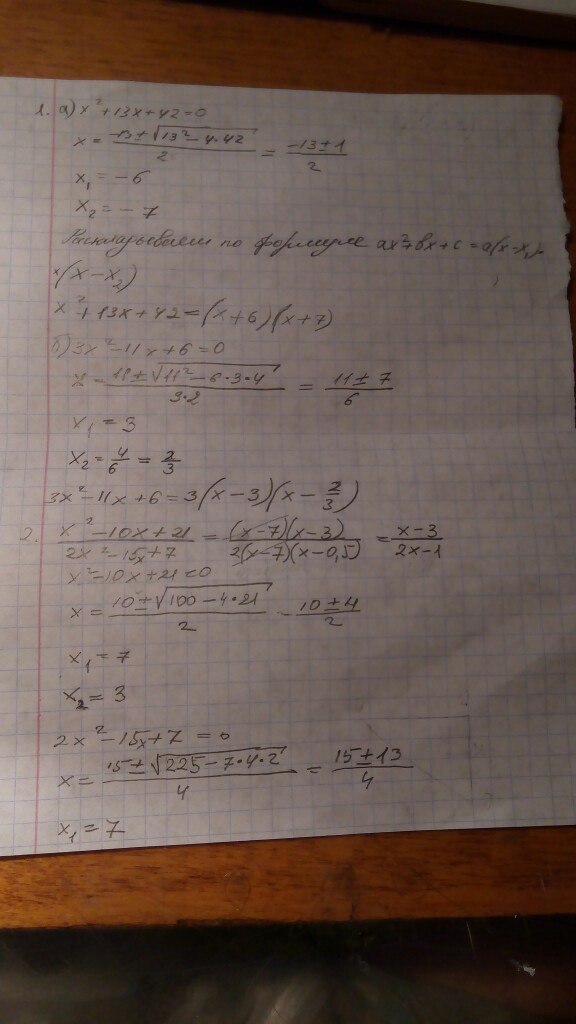 1. а) x² + 13x + 42 = 0
x = (-13 ± √(13² - 4·42))/2 = (-13 ± 1)/2
x₁ = -6
x₂ = -7
Раскладываем по формуле ax² + bx + c = a(x - x₁)×
×(x - x₂)
x² + 13x + 42 = (x + 6)(x + 7)
б) 3x² - 11x + 6 = 0
x = (11 ± √(11² - 6·3·4))/(3·2) = (11 ± 7)/6
x₁ = 3
x₂ = 4/6 = 2/3
3x² - 11x + 6 = 3(x - 3)(x - 2/3)
2. (x² - 10x + 21)/(2x² - 15x + 7) = ((x - 7)(x - 3))/(2(x - 7)(x - 0,5)) = (x - 3)/(2x - 1)
x² - 10x + 21 = 0
x = (10 ± √(100 - 4·21))/2 = (10 ± 4)/2
x₁ = 7
x₂ = 3
2x² - 15x + 7 = 0
x = (15 ± √(225 - 7·4·2))/4 = (15 ± 13)/4
x₁ = 7